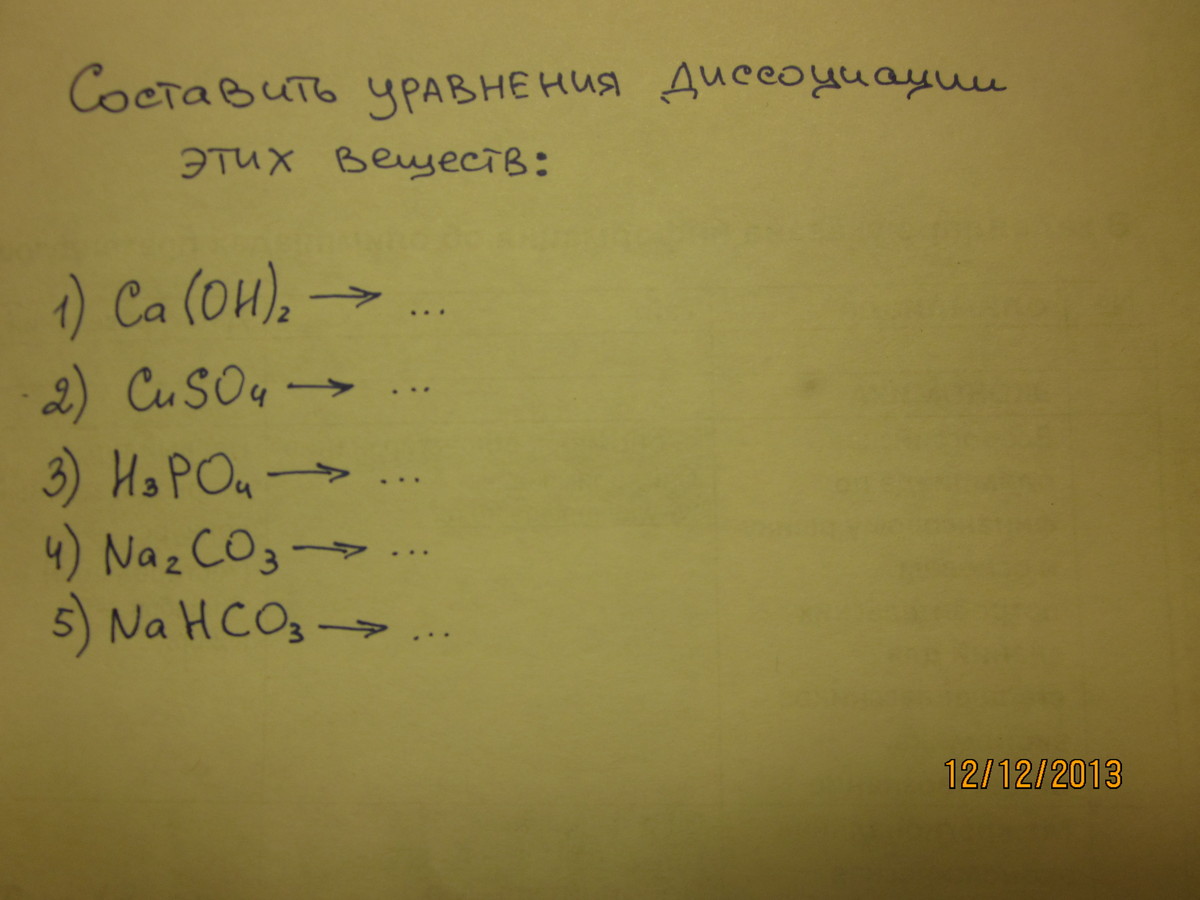 Составить уравнения диссоциации
этих веществ:
1) Ca(OH)₂ → ...
2) CuSO₄ → ...
3) H₃PO₄ → ...
4) Na₂CO₃ → ...
5) NaHCO₃ → ...
12/12/2013